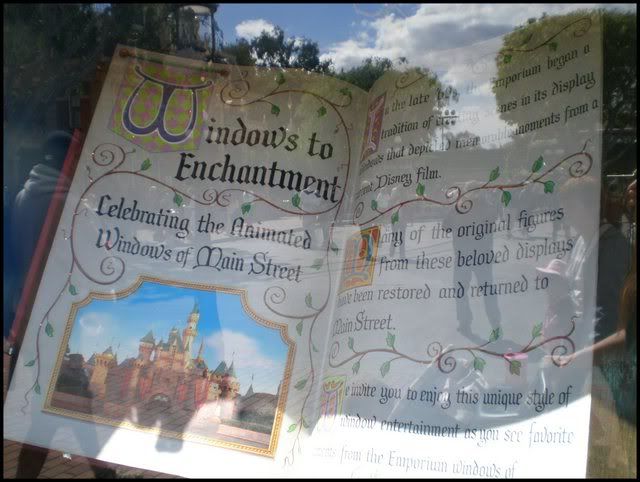 Windows to
Enchantment
Celebrating the Animated
Windows of Main Street
In the late Emporium began a
tradition of scenes in its display
windows that depicted memorable moments from a
current Disney film.
Many of the original figures
from these beloved displays
have been restored and returned to
Main Street.
We invite you to enjoy this unique style of
window entertainment as you see favorite
moments from the Emporium windows of